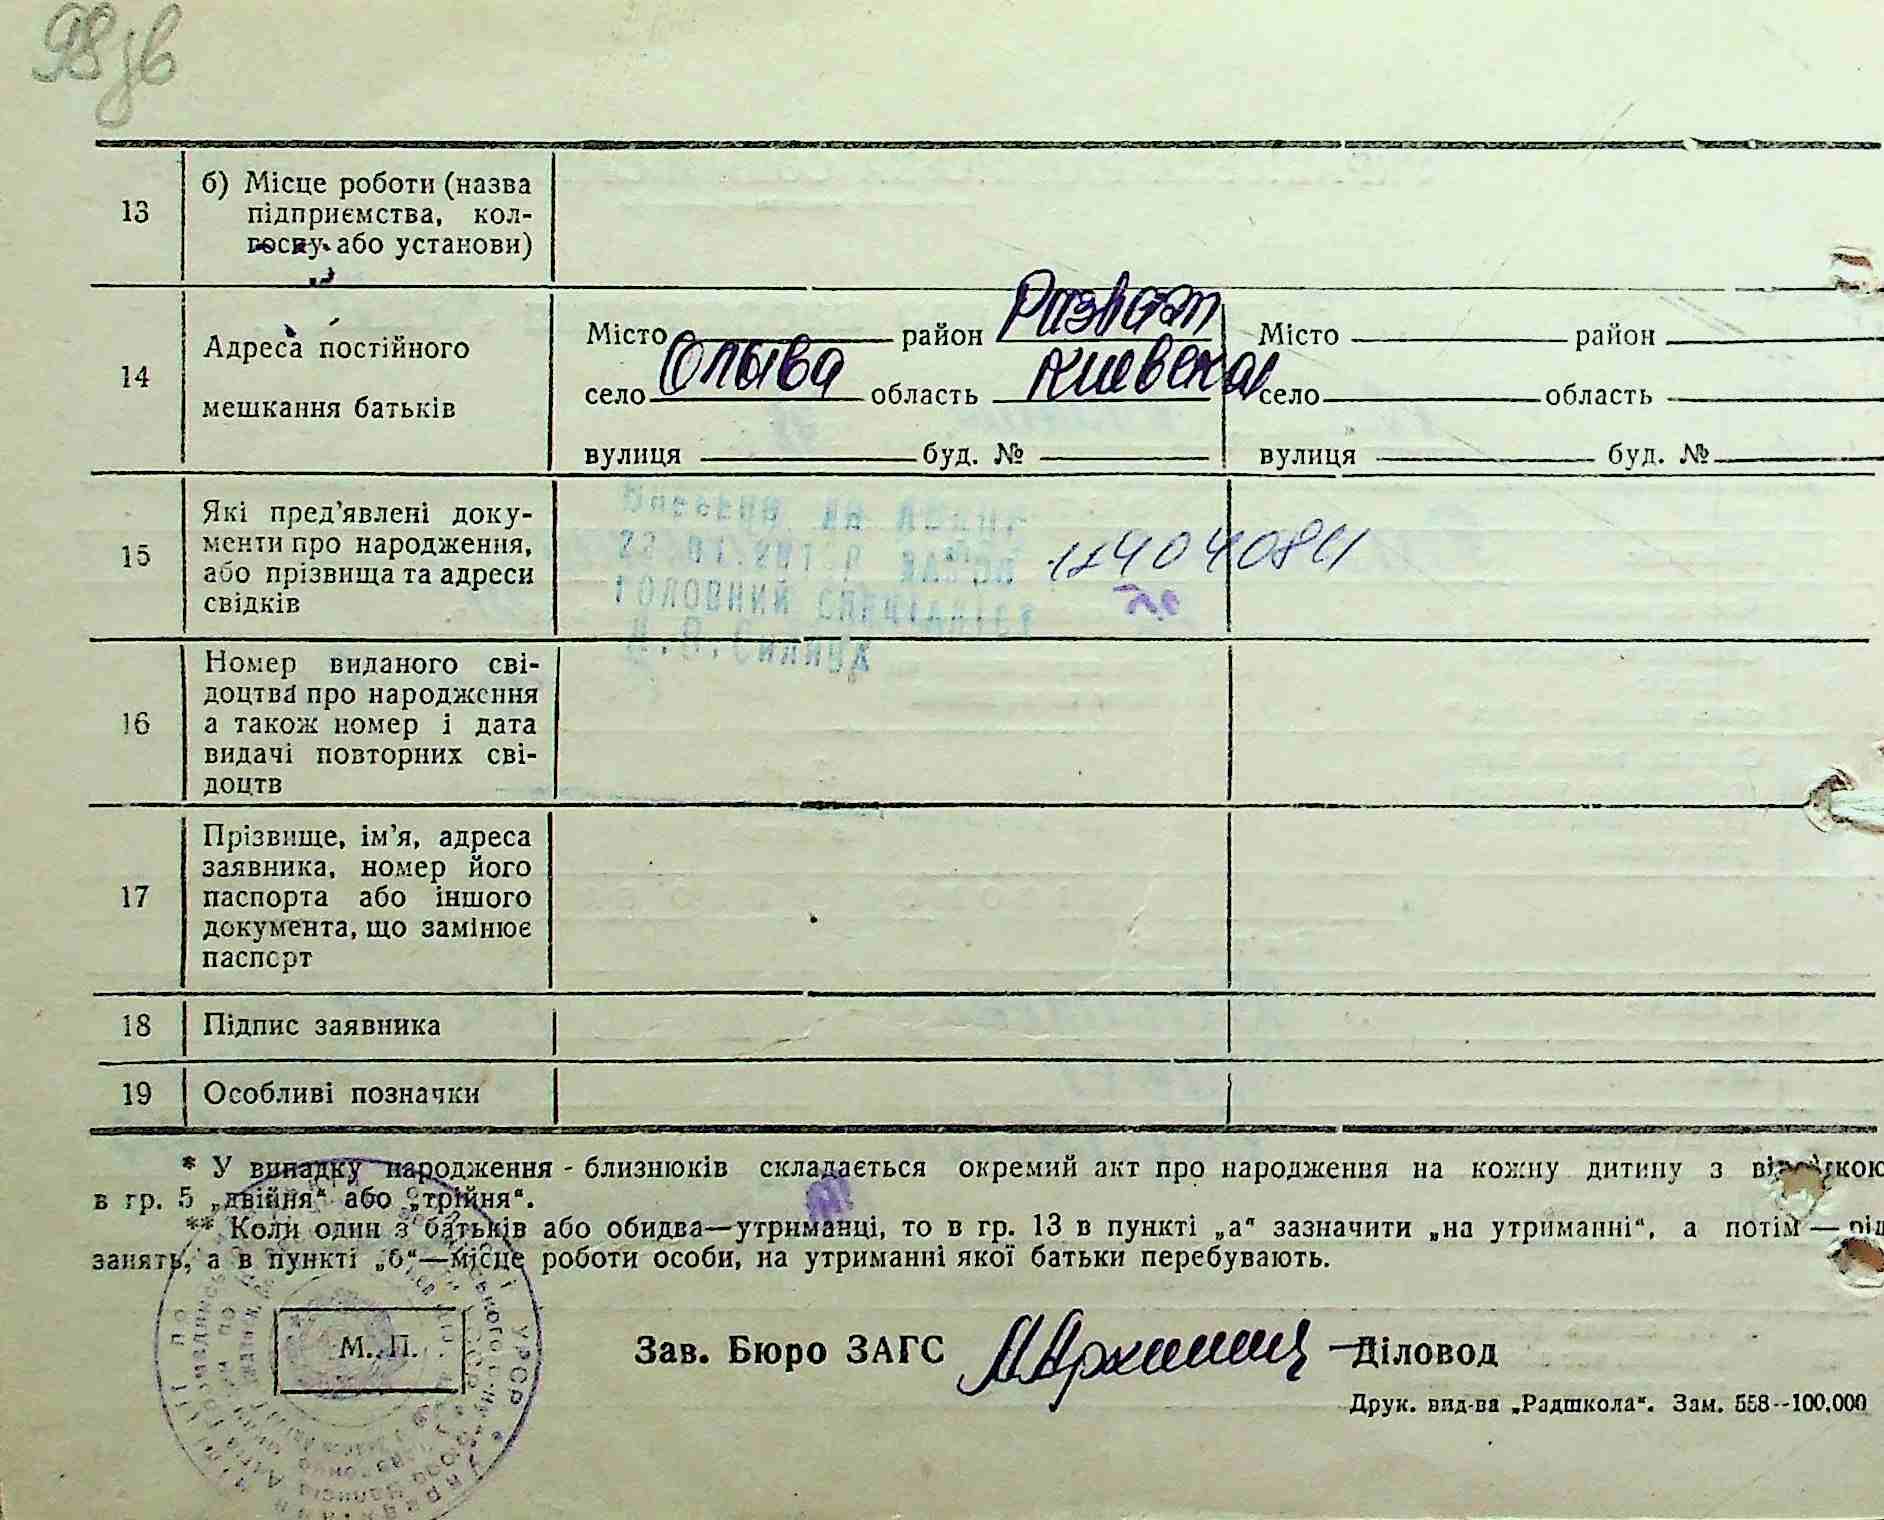 98 зв
13
б) Місце роботи (назва
підприємства, кол-
госпу або установи)
14
Адреса постійного
мешкання батьків
Місто район Розваж
село Олыва область Киевская
вулиця буд. №
Місто район
село область
вулиця буд. №
15
Які пред'явлені доку-
менти про народження,
або прізвища та адреси
свідків
головний спеціаліст
16
Номер виданого сві-
доцтва про народження
а також номер і дата
видачі повторних сві-
доцтв
17
Прізвище, ім'я, адреса
заявника, номер його
паспорта або іншого
документа, що замінює
паспорт
18
Підпис заявника
19
Особливі позначки
* У випадку народження - близнюків складається окремий акт про народження на кожну дитину з відміткою
в гр. 5 „двійня“ або „трійня“.
** Коли один з батьків або обидва—утриманці, то в гр. 13 в пункті „а“ зазначити „на утриманні“, а потім — рід
занять, а в пункті „б“—місце роботи особи, на утриманні якої батьки перебувають.
М. П.
Зав. Бюро ЗАГС
Діловод
Друк. вид-ва „Радшкола“. Зам. 558--100.000